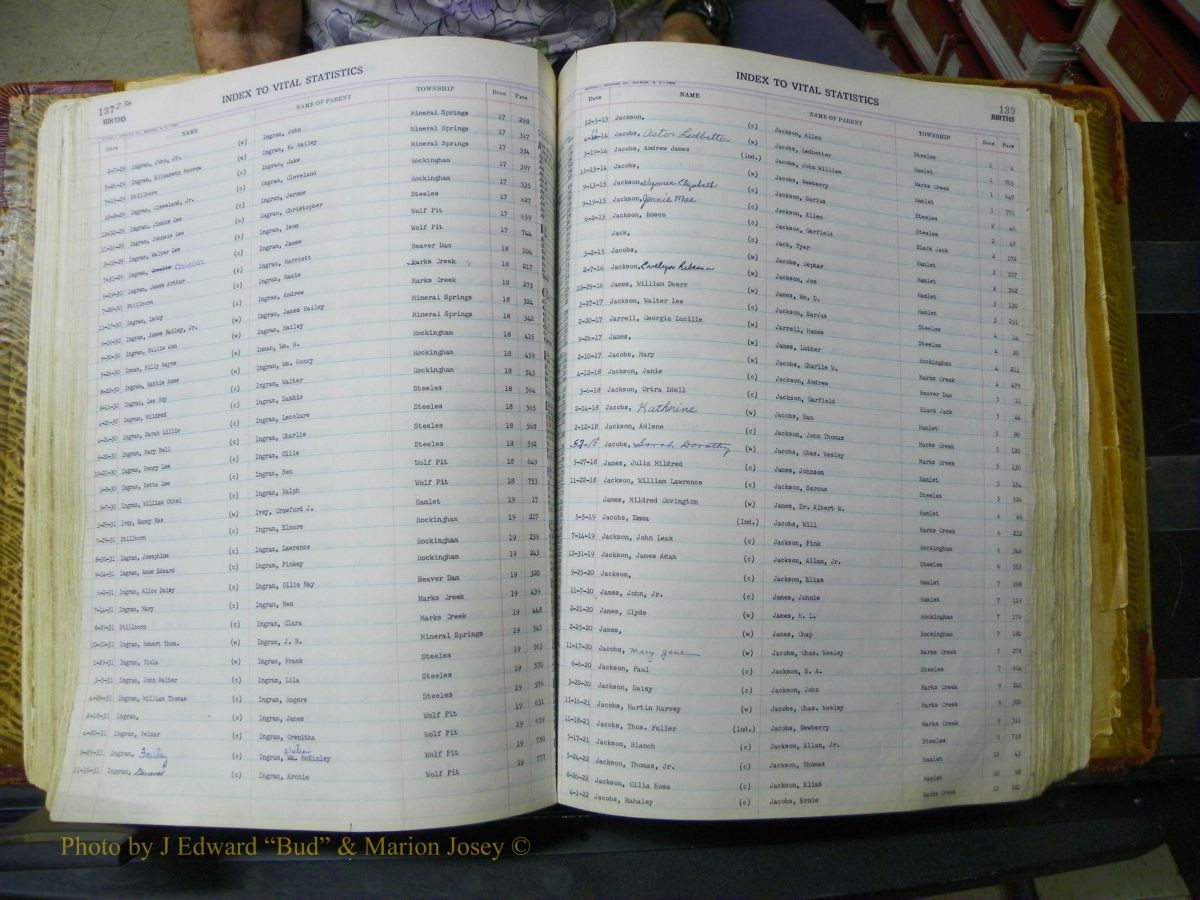 137
BIRTHS
INDEX TO VITAL STATISTICS
Date NAME NAME OF PARENT TOWNSHIP Book Page
Ingram, John, Jr. (w) Ingram, John Mineral Springs 17 298
Ingram, Elizabeth Morrow (w) Ingram, E. Hailey Mineral Springs 17 317
Stillborn (c) Ingram, Jake Mineral Springs 17 334
Ingram, Cleveland, Jr. (c) Ingram, Cleveland Rockingham 17 397
Ingram, Jimmie Lee (c) Ingram, Jerome Rockingham 17 535
Ingram, Johnsie Lee (c) Ingram, Christopher Steeles 17 627
Ingram, Walter Lee (c) Ingram, Isom Wolf Pit 17 659
Ingram, (c) Ingram, James Wolf Pit 17 744
Ingram, James Arthur (c) Ingram, Harriett Beaver Dam 18 104
Stillborn (c) Ingram, Mamie Marks Creek 18 217
Ingram, (c) Ingram, Andrew Marks Creek 18 273
Ingram, James Hailey, Jr. (w) Ingram, James Hailey Mineral Springs 18 324
Ingram, Billie Ann (w) Ingram, Hailey Mineral Springs 18 342
Inman, Billy Wayne (w) Inman, Wm. H. Rockingham 18 415
Ingram, Hattie Anne (w) Ingram, Wm. Henry Rockingham 18 459
Ingram, Lee Roy (c) Ingram, Walter Rockingham 18 543
Ingram, Mildred (c) Ingram, Dunkie Steeles 18 564
Ingram, Sarah Lillie (c) Ingram, Lecolure Steeles 18 565
Ingram, Mary Bell (c) Ingram, Charlie Steeles 18 568
Ingram, Henry Lee (c) Ingram, Ollie Steeles 18 592
Ingram, Vetta Lee (c) Ingram, Ben Wolf Pit 18 649
Ingram, William Othel (c) Ingram, Ralph Wolf Pit 18 753
Ivey, Nancy Mae (w) Ivey, Crawford J. Hamlet 19 17
Stillborn (c) Ingram, Elnore Rockingham 19 217
Ingram, Josephine (c) Ingram, Lawrence Rockingham 19 239
Ingram, Amos Edward (c) Ingram, Pinkey Rockingham 19 243
Ingram, Alice Daisy (c) Ingram, Ollie May Beaver Dam 19 320
Ingram, Mary (c) Ingram, Ben Marks Creek 19 439
Stillborn (c) Ingram, Clara Marks Creek 19 448
Ingram, Robert Thos. (w) Ingram, J. B. Mineral Springs 19 545
Ingram, Viola (w) Ingram, Frank Steeles 19 563
Ingram, John Walter (c) Ingram, Lila Steeles 19 570
Ingram, William Thomas (c) Ingram, Rogers Steeles 19 576
2-18-31 Ingram, (c) Ingram, James Wolf Pit 19 631
Ingram, Velmar (c) Ingram, Grenitha Wolf Pit 19 659
Ingram, (c) Ingram, Wm. McKinley Wolf Pit 19 750
Ingram, General (c) Ingram, Archie Wolf Pit 19 777
139
BIRTHS
INDEX TO VITAL STATISTICS
Date NAME NAME OF PARENT TOWNSHIP Book Page
12-5-13 Jackson, (c) Jackson, Allen Steeles 1
Jacobs, Aston Ledbetter (w) Jacobs, Ledbetter Hamlet 1
3-19-14 Jacobs, Andrew James (Ind.) Jacobs, John William Marks Creek 1
11-15-14 Jacobs, (w) Jacobs, Newberry Hamlet 1 771
9-13-15 Jackson, Wyomia Elizabeth (c) Jackson, Darius Steeles 2 46
9-19-15 Jackson, Jennie Mae (c) Jackson, Allen Steeles 2 47
6-2-15 Jackson, Rosco (c) Jackson, Garfield Black Jack 2 172
Jack, (c) Jack, Tyer Hamlet 2 557
3-2-15 Jacobs, (w) Jacobs, Cephar Hamlet 2 562
2-7-16 Jackson, Evelyn Rebecca (c) Jackson, Joe Hamlet 3 130
10-29-16 James, William Duerr (w) James, Wm. D. Hamlet 3 231
3-27-17 Jackson, Walter Lee (c) Jackson, Darius Steeles 4 14
2-20-17 Jarrell, Georgia Lucille (w) Jarrell, Hames Steeles 4 20
9-26-17 James, (w) James, Luther Rockingham 4 211
2-10-17 Jacobs, Mary (w) Jacobs, Charlie W. Marks Creek 4 479
4-12-18 Jackson, Janie (c) Jackson, Andrew Beaver Dam 5 11
3-6-18 Jackson, Ortra Idell (c) Jackson, Garfield Black Jack 5 44
2-14-18 Jacobs, Katherine (w) Jacobs, San Hamlet 5 80
2-12-18 Jackson, Adlene (c) Jackson, John Thomas Marks Creek 5 120
Jacobs, Sarah Dorothy (w) Jacobs, Chas. Wesley Marks Creek 5 130
5-27-18 James, Julia Mildred (c) James, Johnson Hamlet 5 154
11-22-18 Jackson, William Lawrence (c) Jackson, Zarous Steeles 5 526
James, Mildred Covington (w) James, Dr. Albert W. Hamlet 6
5-5-19 Jacobs, Emma (Ind.) Jacobs, Will Marks Creek 6 212
7-14-19 Jackson, John Leak (c) Jackson, Pink Rockingham 6 346
12-31-19 Jackson, James Adam (c) Jackson, Allan, Jr. Steeles 6 553
9-25-20 Jackson, (c) Jackson, Elias Hamlet 7 108
11-7-20 James, John, Jr. (c) James, Johnie Hamlet 7 119
2-21-20 James, Clyde (w) James, H. L. Rockingham 7 179
2-25-20 James, (w) James, Chap Rockingham 7 180
11-17-20 Jacobs, Mary Jane (w) Jacobs, Chas. Wesley Marks Creek 7 276
6-6-20 Jackson, Paul (c) Jackson, S. A. Steeles 7 414
3-20-20 Jackson, Daisy (c) Jackson, John Marks Creek
11-16-21 Jacobs, Martin Harvey (w) Jacobs, Chas. Wesley Marks Creek
11-18-21 Jacobs, Thos. Fuller (Ind.) Jacobs, Newberry Marks Creek
5-17-21 Jackson, Blanch (c) Jackson, Allan, Jr. Steeles
5-24-22 Jackson, Thomas, Jr. (c) Jackson, Thomas Hamlet 10 43
8-24-22 Jackson, Gilia Rosa (c) Jackson, Elias Hamlet 10
4-1-22 Jacobs, Mahaley (c) Jacobs, Ernie Marks Creek 10
Photo by J Edward "Bud" & Marion Josey ©